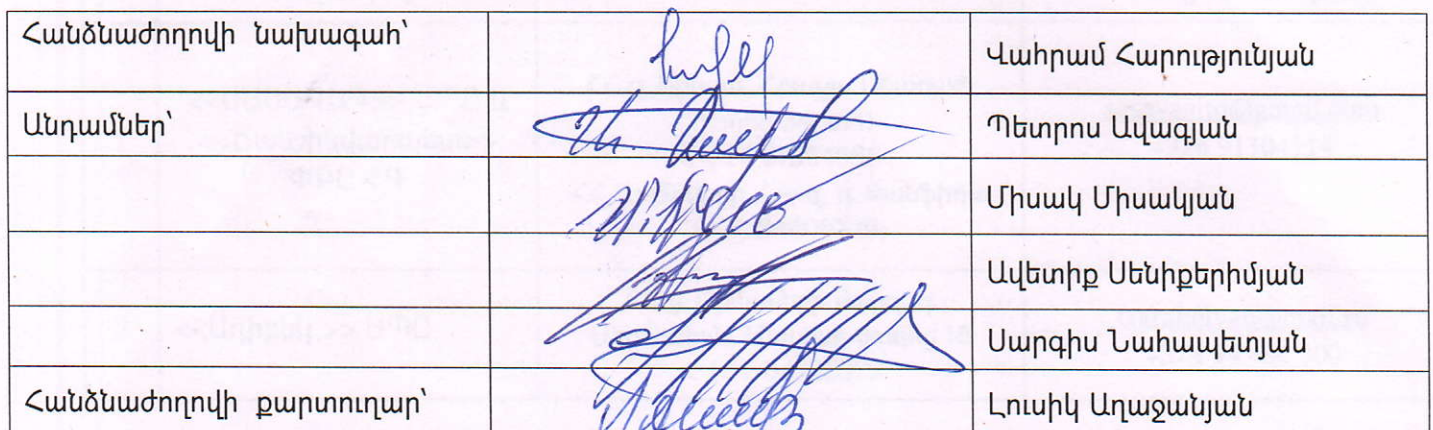 Հանձնաժողովի նախագահ՝ Վահրամ Հարությունյան
Անդամներ՝ Պետրոս Ավագյան
Միսակ Միսակյան
Ավետիք Սենիքերիմյան
Սարգիս Նահապետյան
Հանձնաժողովի քարտուղար՝ Լուսիկ Աղաջանյան